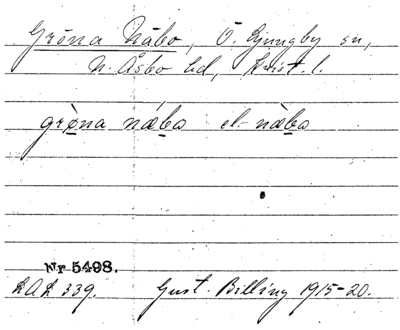 Gröna Nabo, Ö. Ljungby sn,
N. Åsbo hd, Krist. l.
grø̀na nábo el. nàbo
Nr 5498.
LAL 339. Gust. Billing 1915-20.